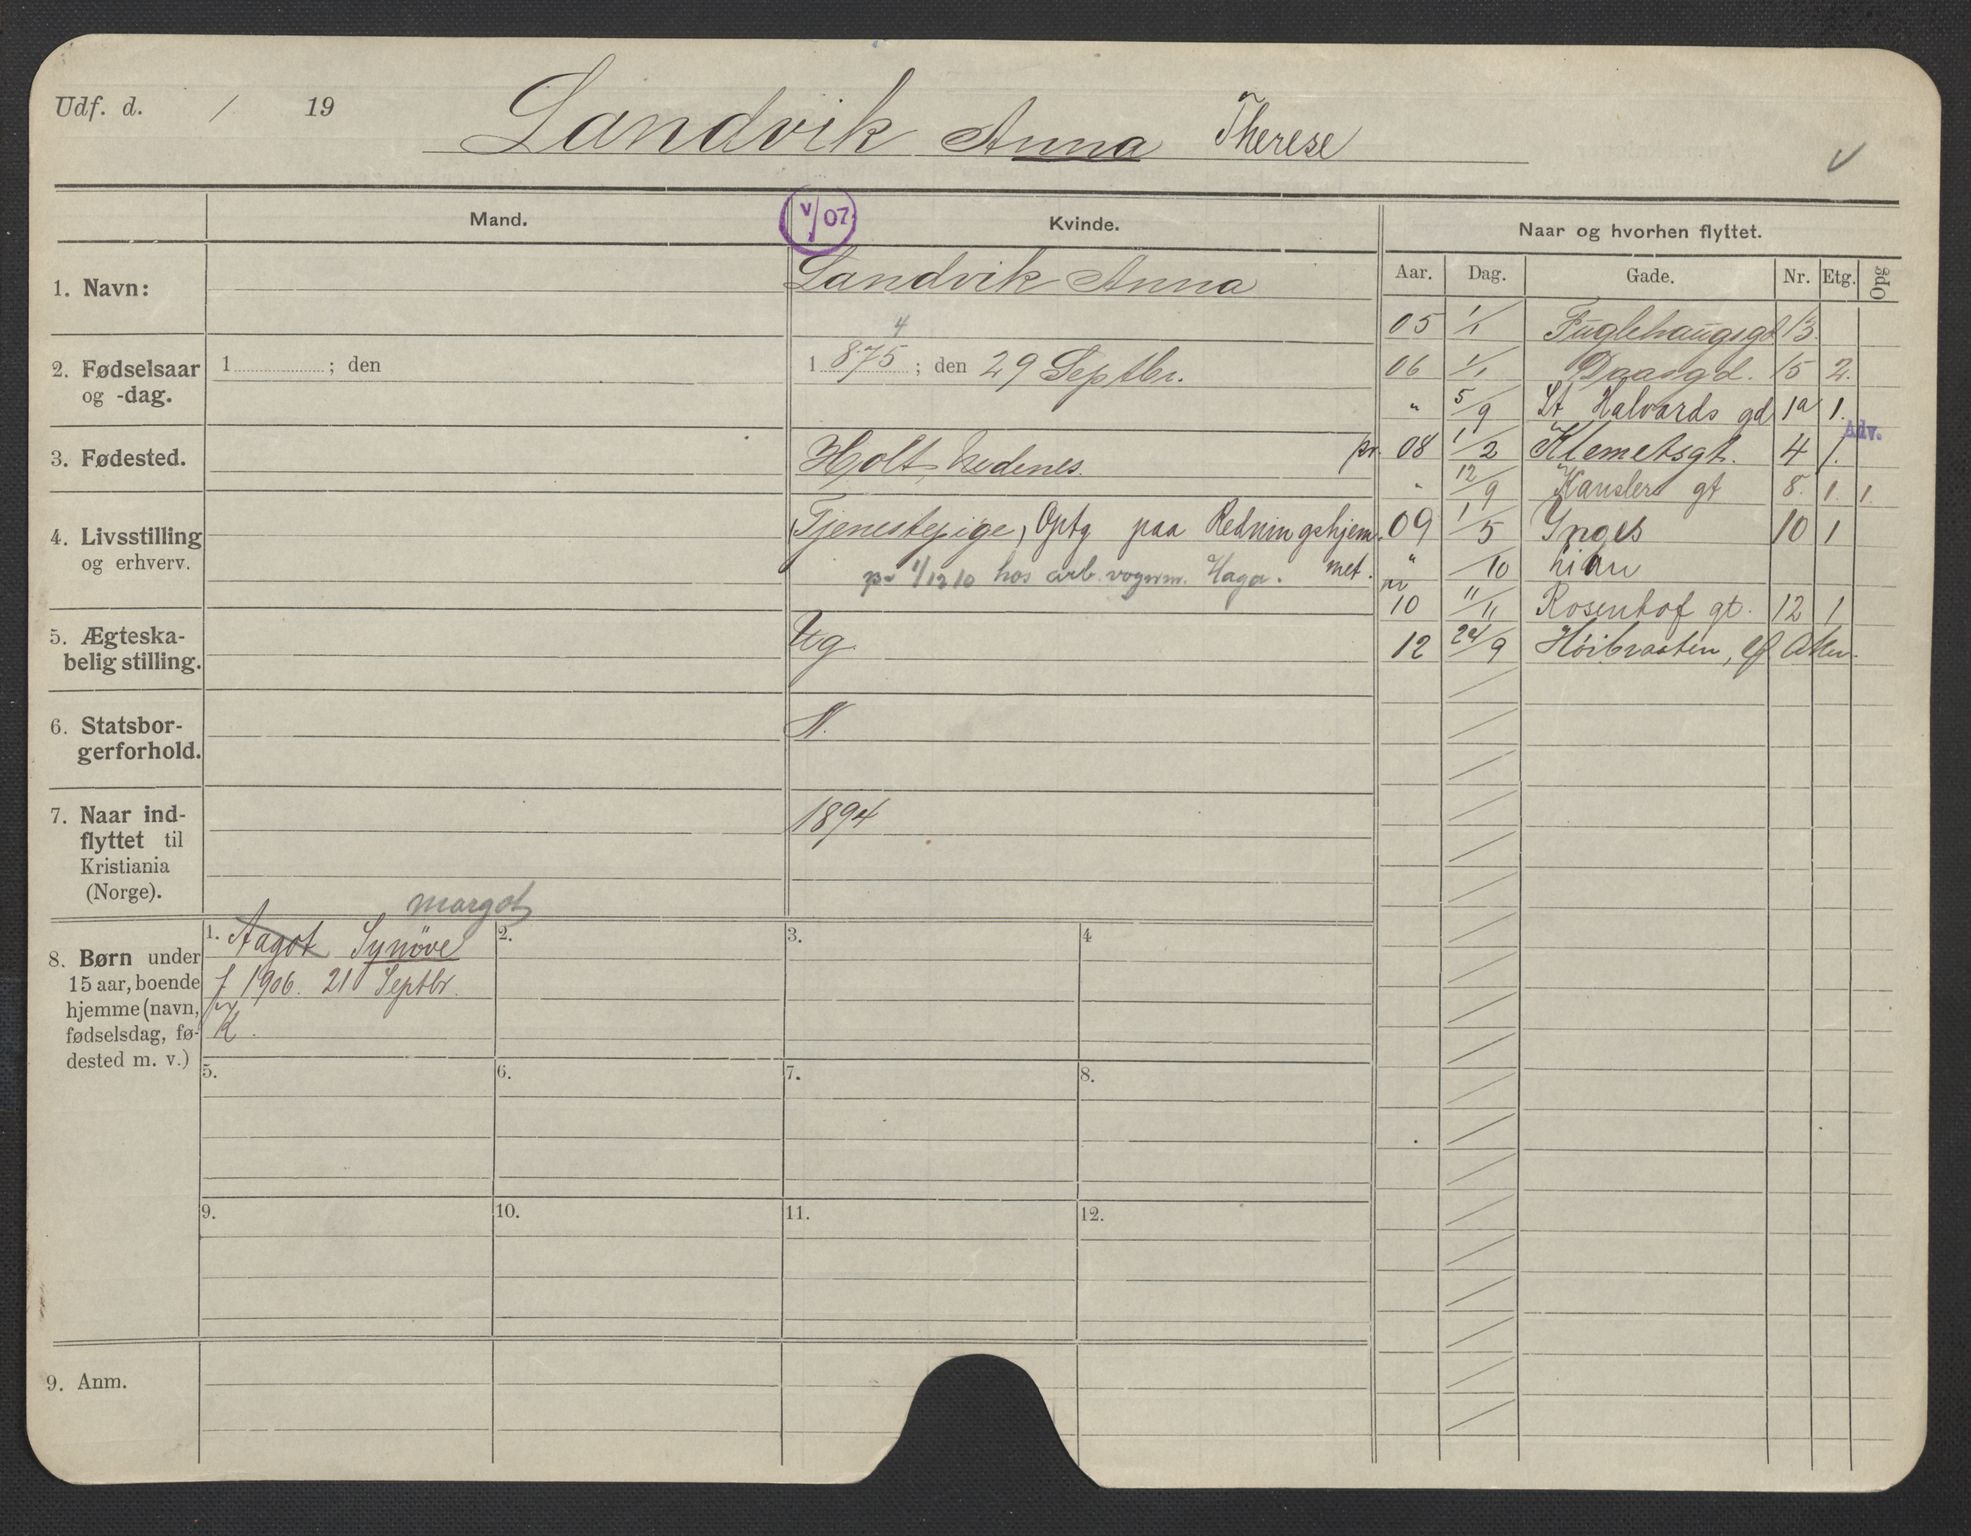 Udf. d. / 19
Landvik Anna Therese
V
Mand.
V/07
Kvinde.
Naar og hvorhen flyttet.
Aar. Dag. Gade. Nr. Etg. Opg
1. Navn:
Landvik Anna
2. Fødselsaar og -dag.
1 ; den
4
1 875 ; den 29 Septbr.
3. Fødested.
Holt, Nedenes.
4. Livsstilling og erhverv.
Tjenestepige, Optg paa Redningshjem
met.
pr 1/12 10 hos arb. vognm. Haga.
5. Ægteska-
belig stilling.
Ug
6. Statsbor-
gerforhold.
N.
7. Naar ind-
flyttet til
Kristiania
(Norge).
1894
05 1/1 Fuglehaugsgd 13.
06 1/1 Daasgd. 15 2.
" 5/9 St Halvards gd 1a 1.
Adv.
pr. 08 1/2 Klemetsgt. 4 1.
" 12/9 Kanslers gt 8. 1. 1.
09 1/5 Inges 10 1
" /10 Lian
pr
10 11/11 Rosenhof gt. 12 1
12 24/9 Høibraaten, Aker.
8. Børn under
15 aar, boende
hjemme (navn,
fødselsdag, fø-
dested m. v.)
margot
1. Aagot Synöve
f 1906. 21 Septbr.
K.
2.
3.
4
5.
6.
7.
8.
9.
10.
11.
12.
9. Anm.